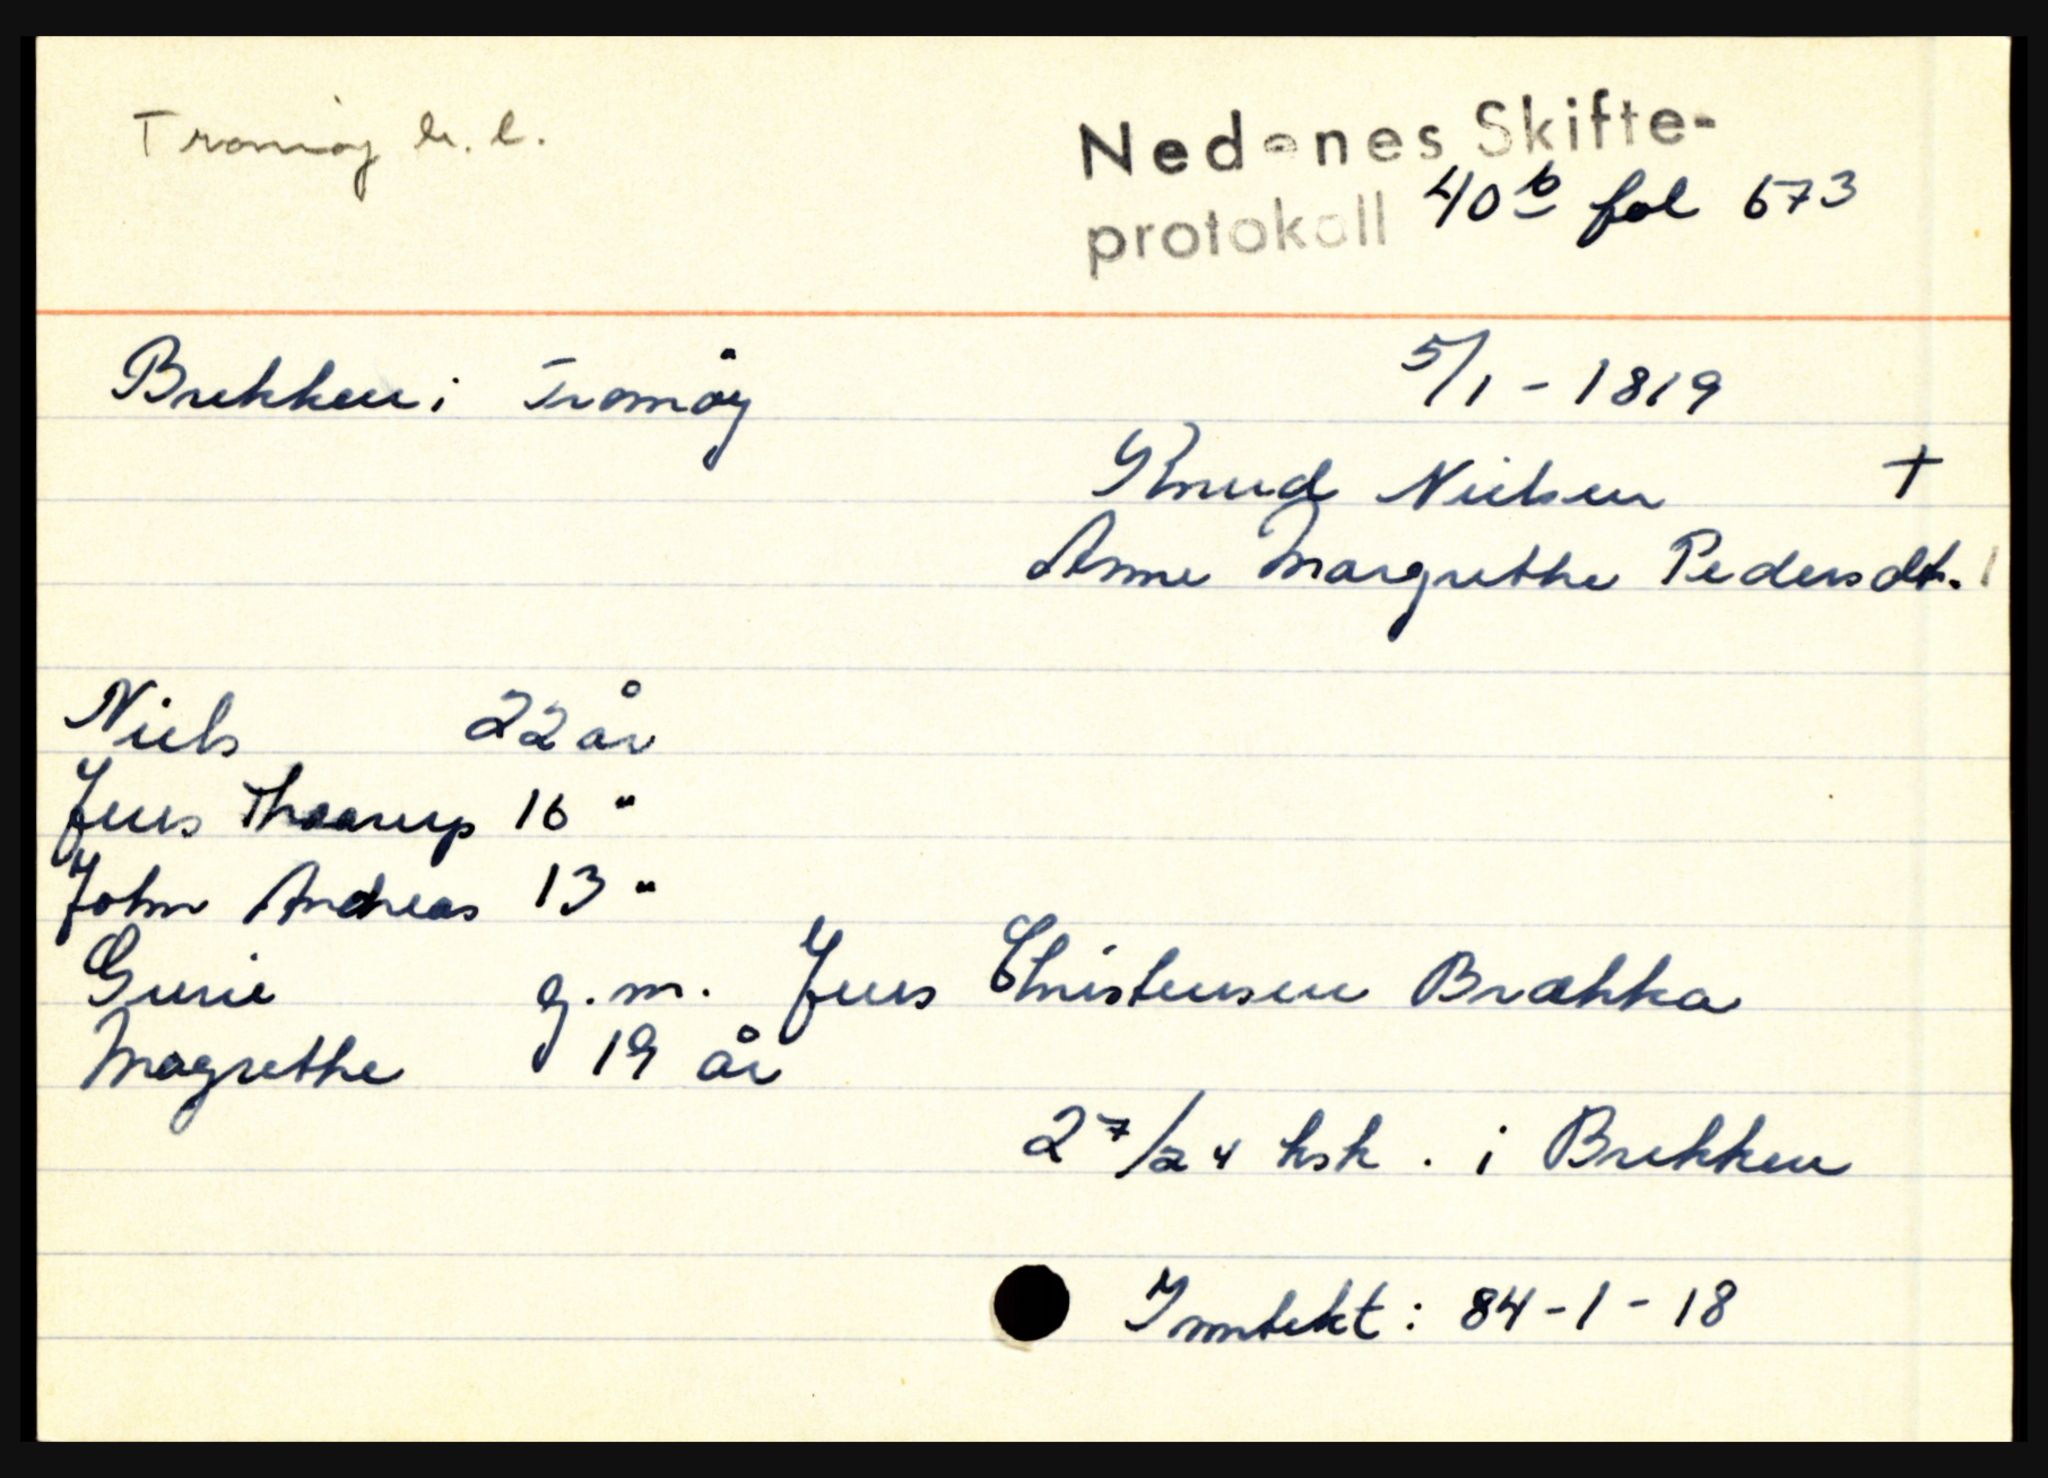 Tromøy h.l.
Nedenes Skifte-
protokoll 40b fol 673
Brekken i Tromøy
5/1 - 1819
Knud Nielsen †
Anne Margrethe Pedersdt.
Niels 22 år
Jens Thaarup 16 "
John Andreas 13 "
Gurie g.m. Jens Christensen Brækka
Magrethe 19 år
2 7/24 hsk. i Brekken
Inntekt: 84-1-18